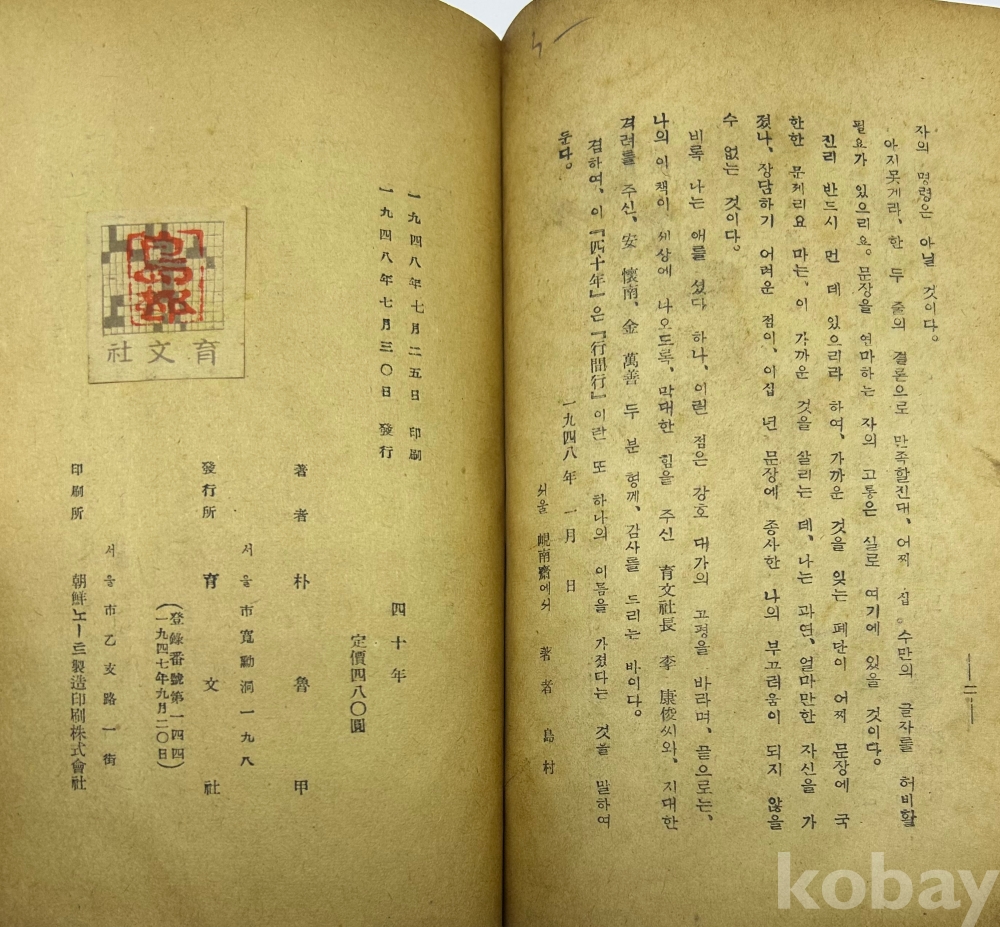 자의 명령은 아닐 것이다。
아지못게라、한 두 줄의 결론으로 만족할진대、어찌 십 수만의 글자를 허비할
필요가 있으리요。문장을 연마하는 자의 고통은 실로 여기에 있을 것이다。
진리 반드시 먼 데 있으리라 하여、가까운 것을 잊는 폐단이 어찌 문장에 국
한한 문제리요 마는、이 가까운 것을 살리는 데、나는 과연、얼마만한 자신을 가
졌나、장담하기 어려운 점이、이십 년 문장에 종사한 나의 부끄러움이 되지 않을
수 없는 것이다。
비록 나는 애를 썼다 하나、이런 점은 강호 대가의 고평을 바라며、끝으로는、
나의 이 책이 세상에 나오도록、막대한 힘을 주신 育文社長 李 康俊씨와、지대한
격려를 주신、安 懷南、金 萬善 두 분 형께、감사를 드리는 바이다。
겸하여、이「四十年」은「行間行」이란 또 하나의 이름을 가졌다는 것을 말하여
둔다。
一九四八年 一月 日
서울 峴南齋에서 著者 島村
一二一
一九四八年七月二五日 印刷
一九四八年七月三〇日 發行
四十年
定價四八〇圓
著者 朴魯甲
서울市寬勳洞一九八
發行所 育文社
(登錄番號第一四四
一九四七年九月二〇日)
서울市乙支路一街
印刷所 朝鮮노ー트製造印刷株式會社
育文社
kobay